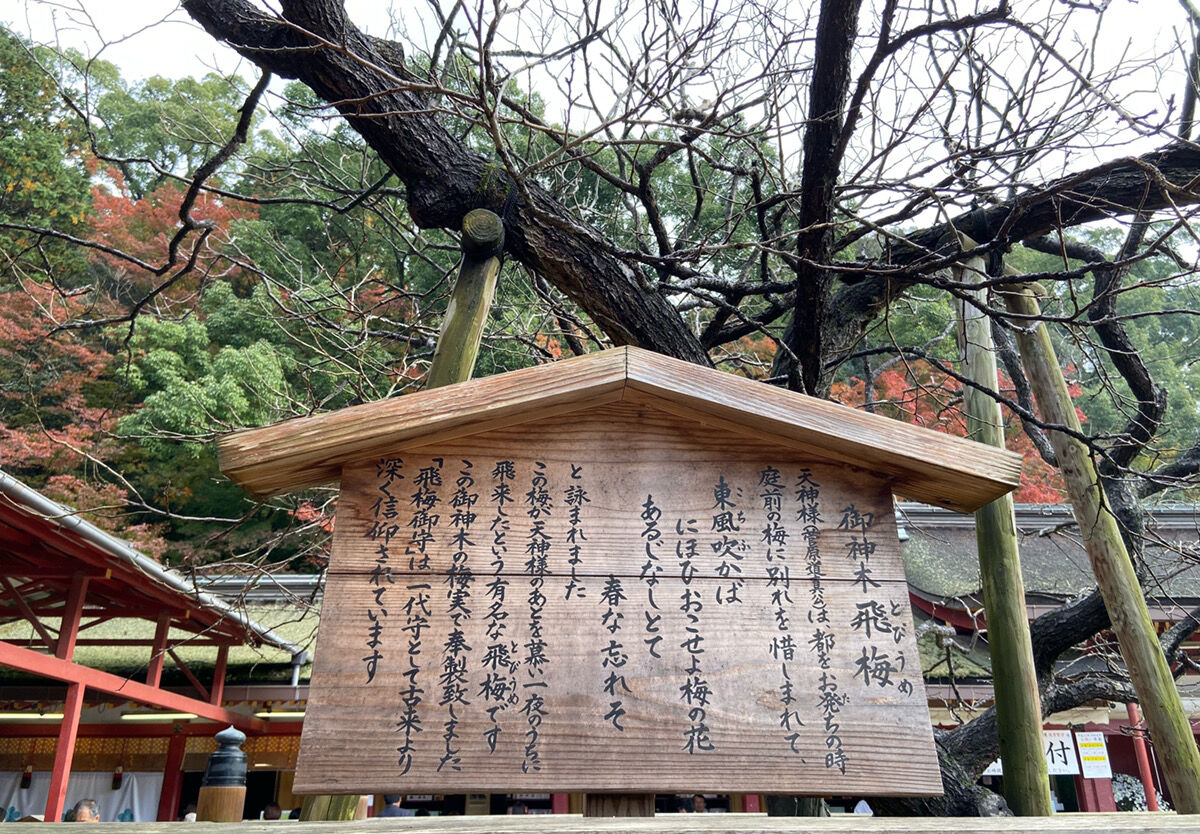 御神木 飛梅
とびうめ
天神様(菅原道真公)は都をお発ちの時
た
庭前の梅に別れを惜しまれて、
東風吹かば
こち ふ
にほひおこせよ梅の花
あるじなしとて
春な忘れそ
と詠まれました
この梅が天神様のあとを慕い一夜のうちに
飛来したという有名な飛梅です
とびうめ
この御神木の梅実で奉製致しました
「飛梅御守」は一代守として古来より
深く信仰されています
付